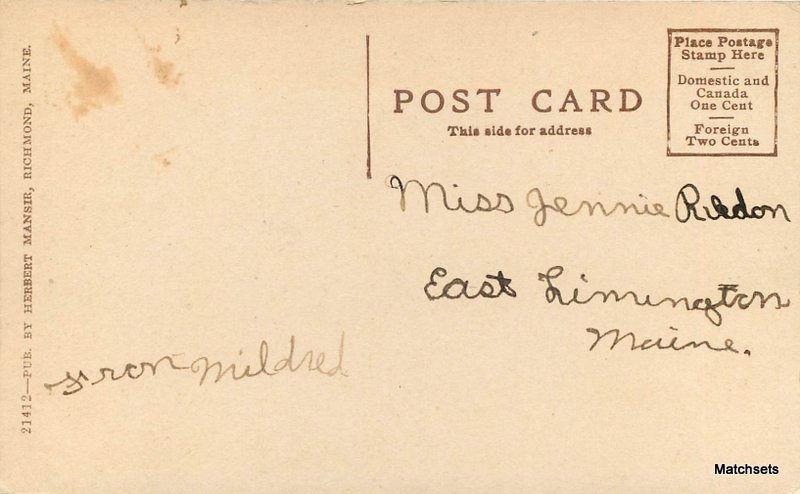 21412—PUB. BY HERBERT MANSIR, RICHMOND, MAINE.
POST CARD
This side for address
Place Postage
Stamp Here
Domestic and
Canada
One Cent
Foreign
Two Cents
Miss Jennie
East Limington
Maine.
from Mildred
Matchsets